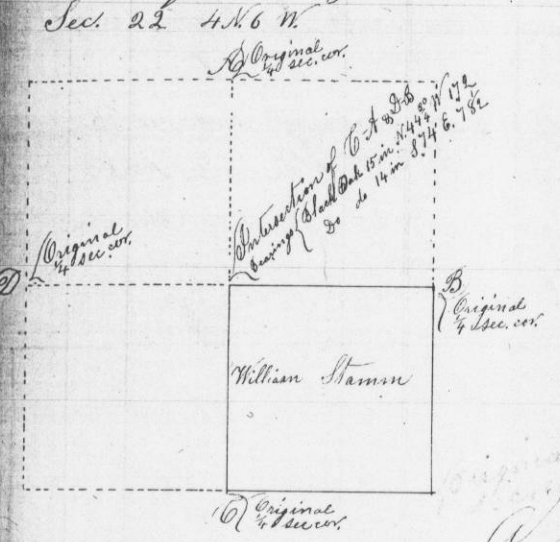 Sec. 22 4 N. 6 W.
A Original
1/4 sec. cor.
Intersection of C-A & D-B
Bearings { Black Oak 15 in N. 44 3/4° W 172
Do do 14 in S. 74° E. 78 1/2
Original
1/4 sec cor.
D
B
Original
1/4 sec. cor.
William Stamm
C Original
1/4 sec cor.